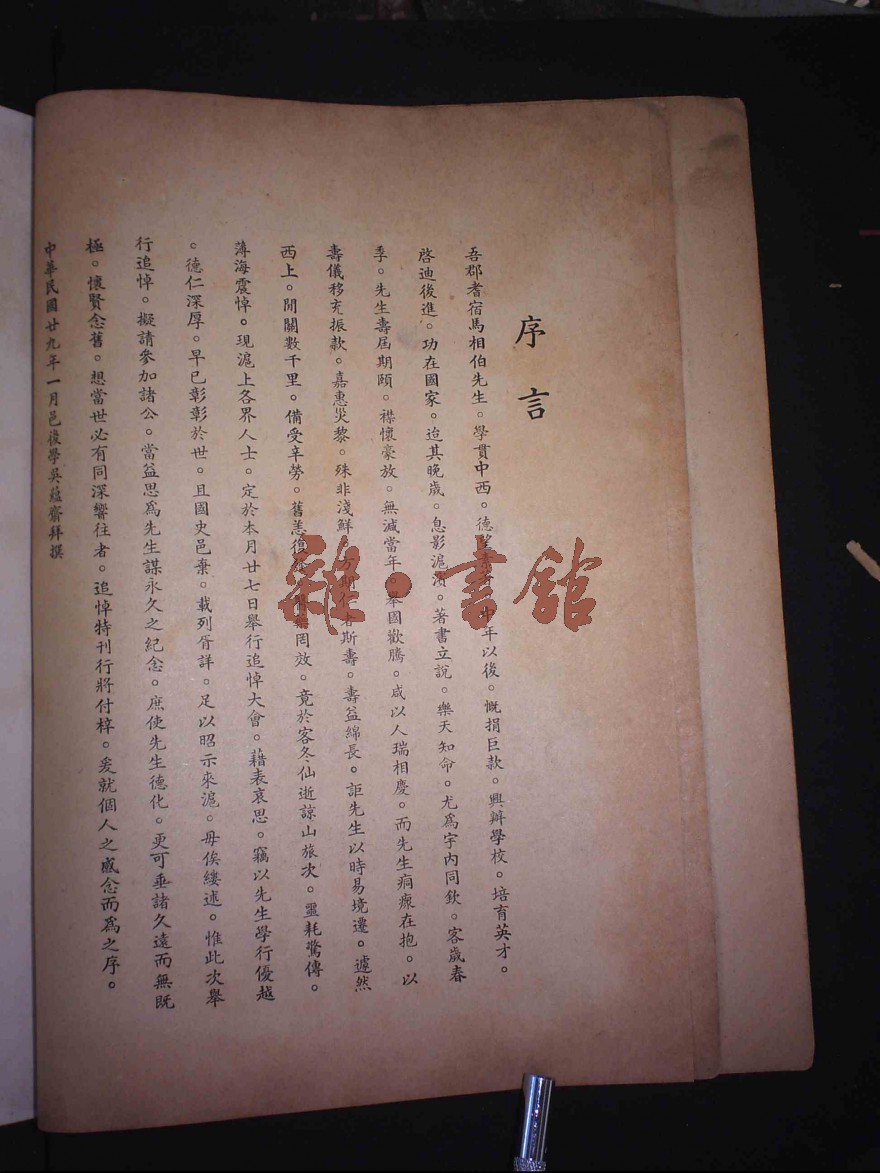 序言
吾郡耆宿馬相伯先生。學貫中西。德望素著。中年以後。慨捐巨款。興辦學校。培育英才。
啓迪後進。功在國家。迨其晚歲。息影滬濱。著書立說。樂天知命。尤爲宇內同欽。客歲春
季。先生壽屆期頤。襟懷豪放。無減當年。舉國歡騰。咸以人瑞相慶。而先生痌瘝在抱。以
壽儀移充振款。嘉惠災黎。殊非淺鮮。方期仁者斯壽。壽益綿長。詎先生以時易境遷。遽然
西上。間關數千里。備受辛勞。舊恙復罔效。竟於客冬仙逝諒山旅次。噩耗驚傳。
薄海震悼。現滬上各界人士。定於本月廿七日舉行追悼大會。藉表哀思。竊以先生學行優越
。德仁深厚。早已彰彰於世。且國史邑乘。載列胥詳。足以昭示來滬。毋俟縷述。惟此次舉
行追悼。擬請參加諸公。當益思爲先生謀永久之紀念。庶使先生德化。更可垂諸久遠而無既
極。懷賢念舊。想當世必有同深響往者。追悼特刊行將付梓。爰就個人之感念而爲之序。
中華民國廿九年一月邑後學吳蘊齋拜撰
雜·書館